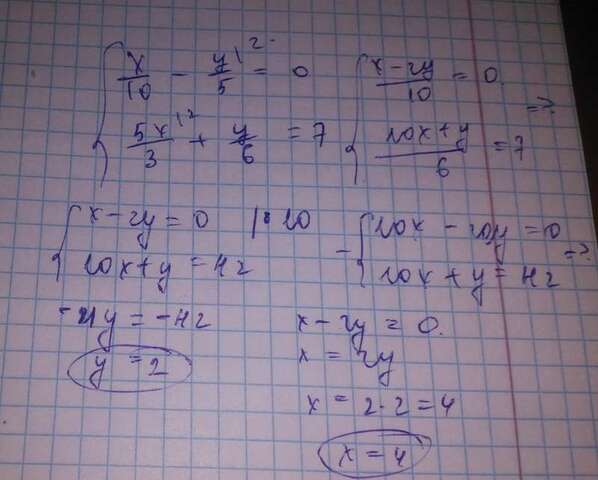 x/10 - y/5 |2· = 0
5x/3 |2 + y/6 = 7
(x-2y)/10 = 0 =>
(10x+y)/6 = 7
x-2y = 0 |·10
10x+y = 42
- 10x - 20y = 0 =>
10x + y = 42
-21y = -42
y = 2
x - 2y = 0.
x = 2y
x = 2·2 = 4
x = 4